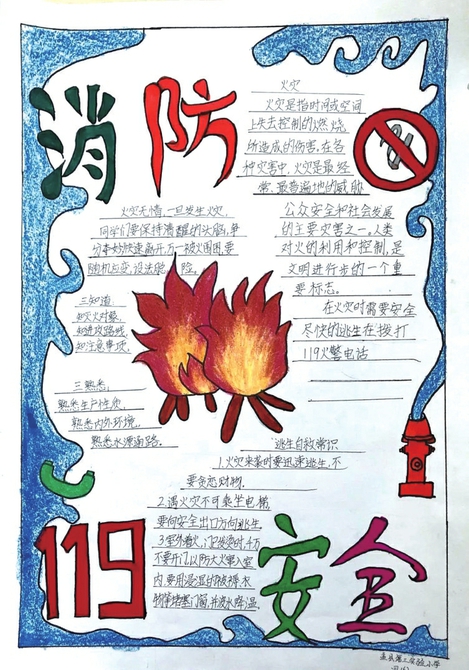 消防
火灾
火灾是指时间或空间
上失去控制的燃烧,
所造成的伤害,在各
种灾害中,火灾是最经
常、最普遍地的威胁
公众安全和社会发展
的主要灾害之一,人类
对火的利用和控制,是
文明进行步的一个重
要标志。
在火灾时需要安全
尽快的逃生在拨打
119火警电话
火灾无情,一旦发生火灾,
同学们要保持清醒的头脑,争
分秒快速离开万一被火围困,要
随机应变,设法脱险。
三知道:
知灭火对象,
知进攻路线
知注意事项。
三熟悉:
熟悉生产性质,
熟悉内外环境,
熟悉水源道路。
逃生自救常识
1.火灾来袭时要迅速逃生,不
要贪恋财物.
2.遇火灾不可乘坐电梯,
要向安全出口方向逃生
3.室外着火,门已发烫时,千万
不要开门,以防大火窜入室
内,要用浸湿的被褥、衣
物等堵塞门窗,并泼水降温.
119
安全
实验小学